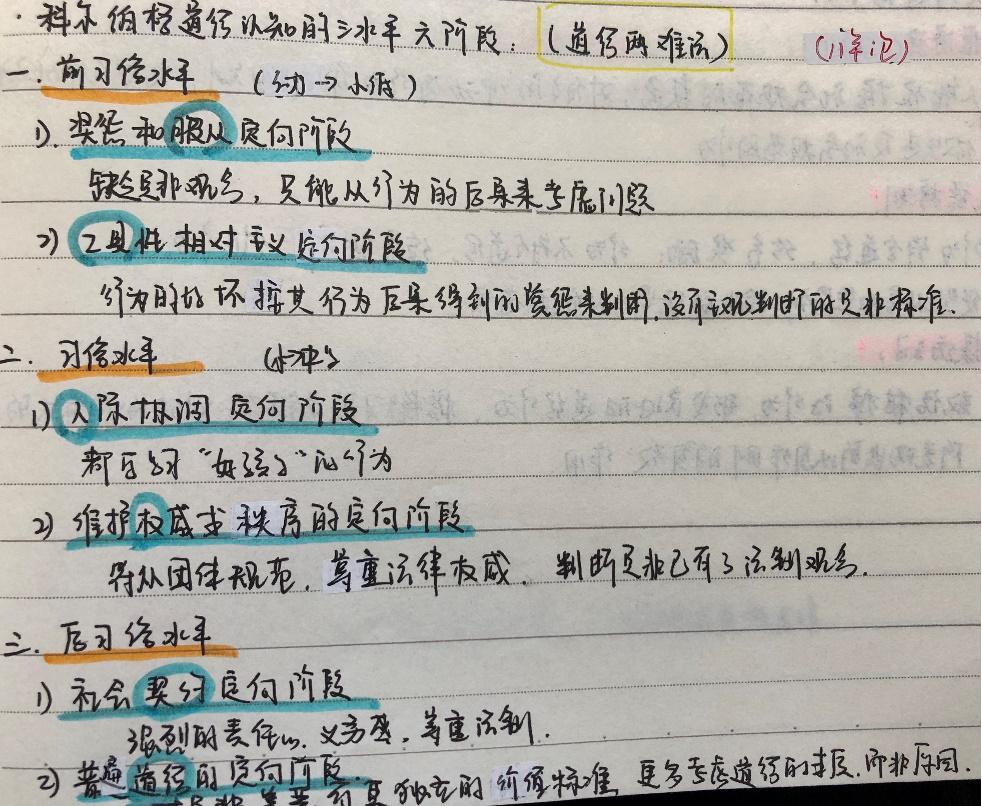 ·科尔伯格道德认知的三水平六阶段:(道德两难法)
一.前习俗水平 (幼→小低)
1).奖惩和服从定向阶段
缺乏是非观念,只能从行为的后果来考虑问题
2)工具性相对主义定向阶段
行为的好坏按其行为后果得到的赏惩来判断,没有主观判断的是非标准.
二.习俗水平
1)人际协调定向阶段
都学习“好孩子”的行为
2)维护权威或秩序的定向阶段
符从团体规范,尊重法律权威,判断是非已有了法制观念.
三.后习俗水平
1)社会契约定向阶段
强烈的责任心,义务感,尊重法制.
2)普遍道德的定向阶段.
独立的价值标准 更多考虑道德的本质,而非原因.